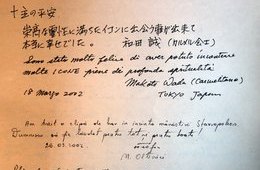 十主の平安
崇高な霊性に満ちたイコンに出会う事が出来て
本当に幸せでした。 和田 誠 (カルメル会士)
Sono stato molto felice di aver potuto incontrare
molte ICONE piene di profonda spiritualità
Makoto Wada (Carmelitano)
18 marzo 2002 TOKYO Japan
Am trait o clipa de har in incinta mânăstirii Stavropoleos
Dumnezeu să fie lăudat pentru toate și pentru toți!
26.03.2002.